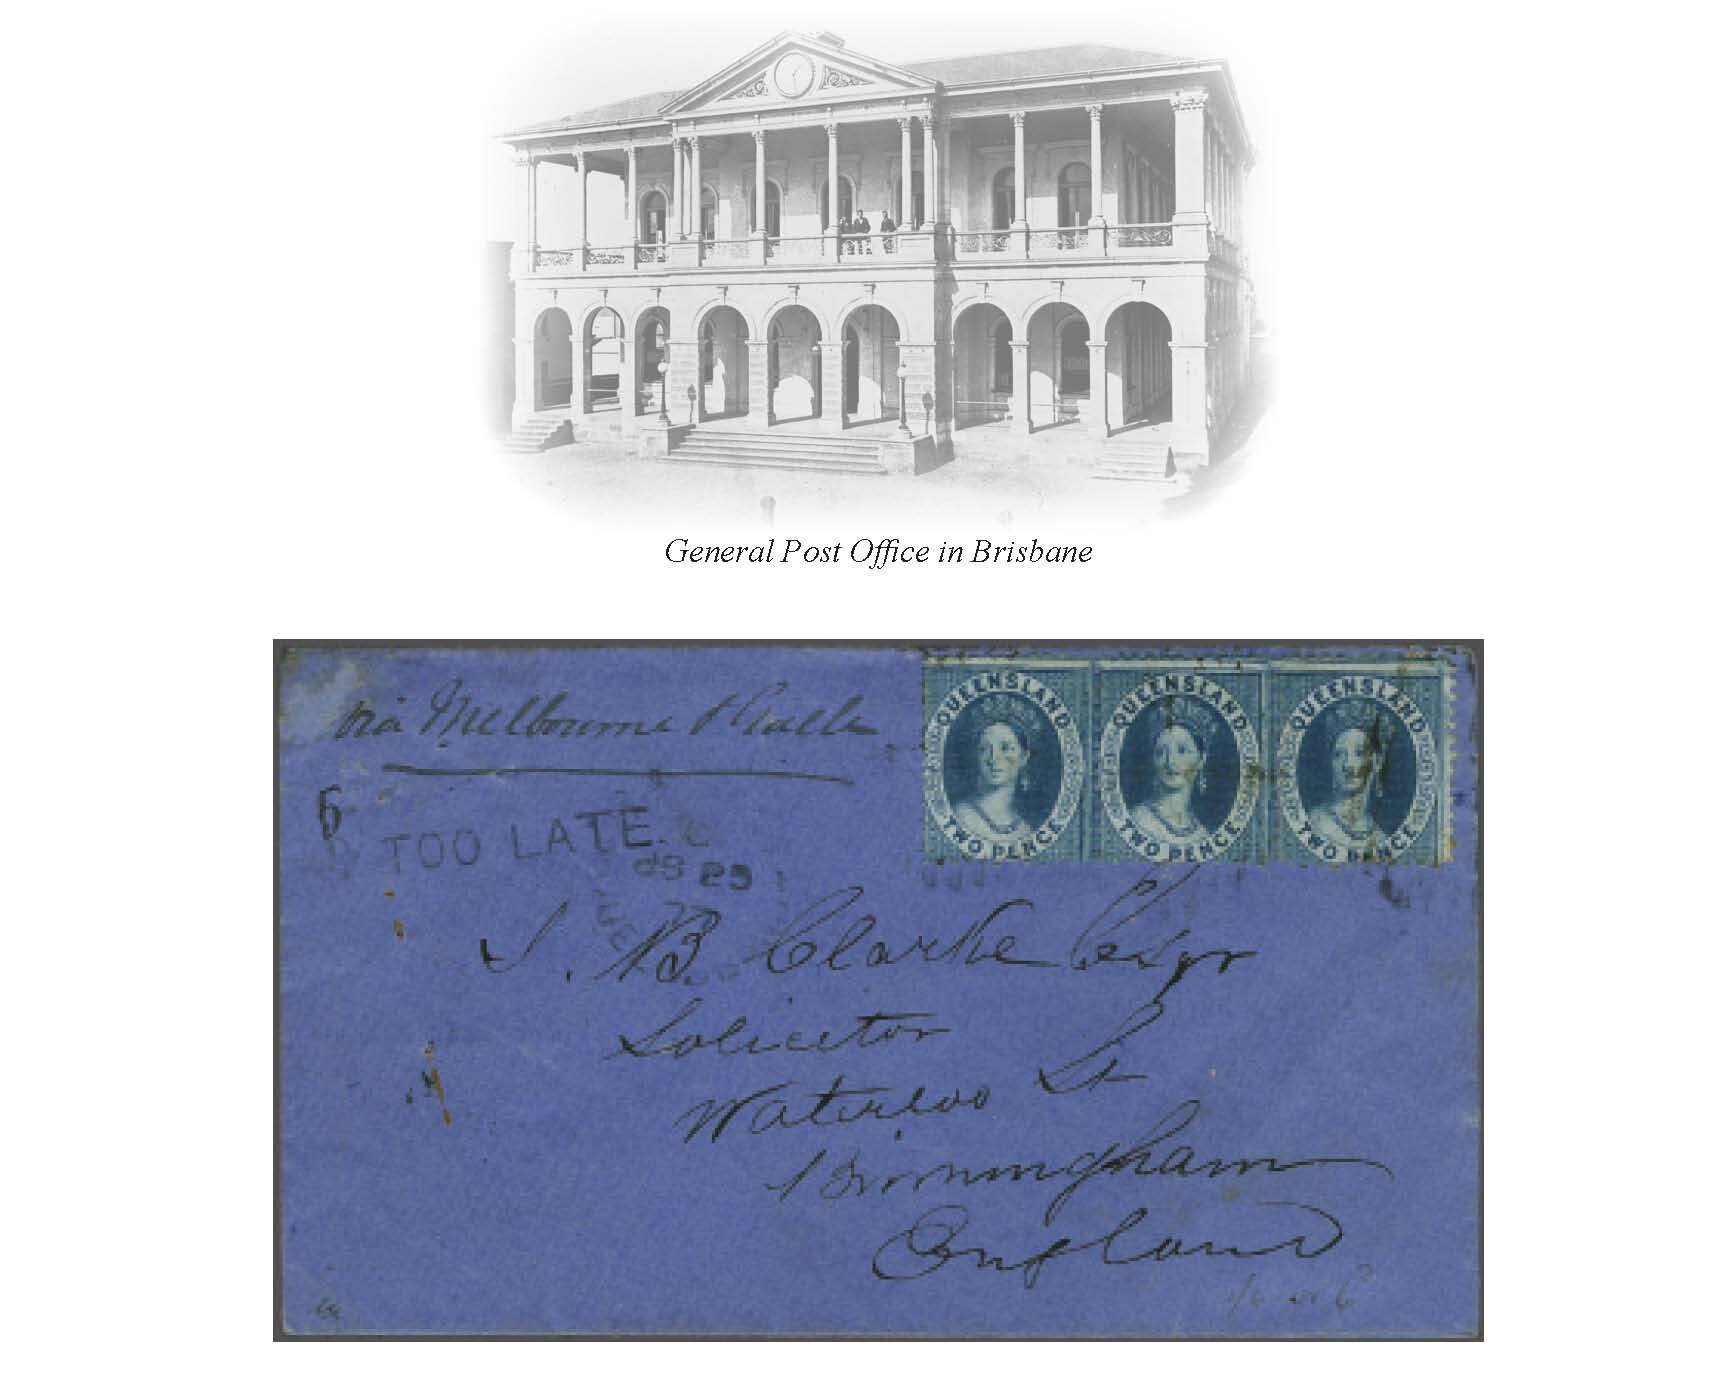 General Post Office in Brisbane
via Melbourne & Galle
QUEENSLAND QUEENSLAND QUEENSLAND
TWO PENCE TWO PENCE TWO PENCE
6
TOO LATE.
Clarke Esqr
Solicitor
Waterloo St
Birmingham
England